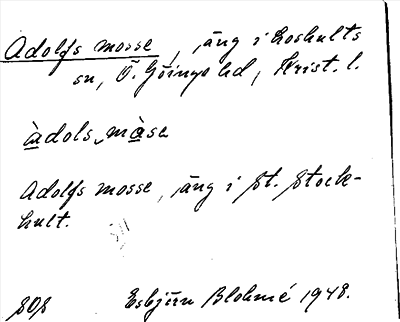 Adolfs mosse, äng i Loshults
sn, Ö. Göinge hd, Krist. l.
àdols måse
Adolfs mosse, äng i St. Stock-
hult.
SOS Esbjörn Blohmé 1948.